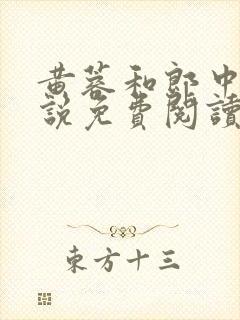 黄蓉和郎中
說免費閱讀
東方十三